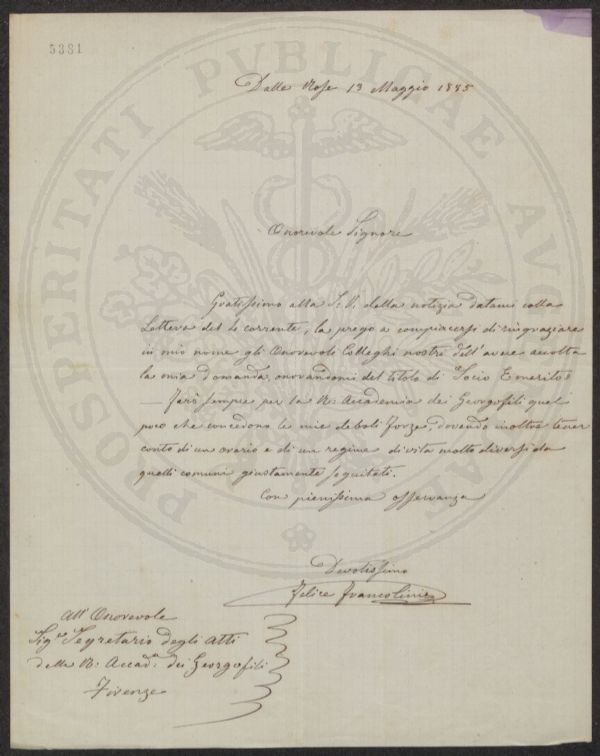 5331
PROSPERITATI PVBLICAE AVGENDAE
Dalle Rose 13 Maggio 1885
Onorevole Signore
Gratissimo alla S. V. della notizia datami colla
Lettera del corrente, la prego a compiacersi di ringraziare
in mio nome gli Onorevoli Colleghi nostri dell'avere accolta
la mia domanda, onorandomi del titolo di Socio Emerito
— Farò sempre per la R. Accademia dei Georgofili quel
poco che concedono le mie deboli forze, dovendo inoltre tener
conto di un orario e di un regime di vita molto diversi da
quelli comuni giustamente seguitati.
Con pienissima osservanza
Devotissimo
Felice Francolini
All' Onorevole
Sigre Segretario degli Atti
della R. Accad. dei Georgofili
Firenze